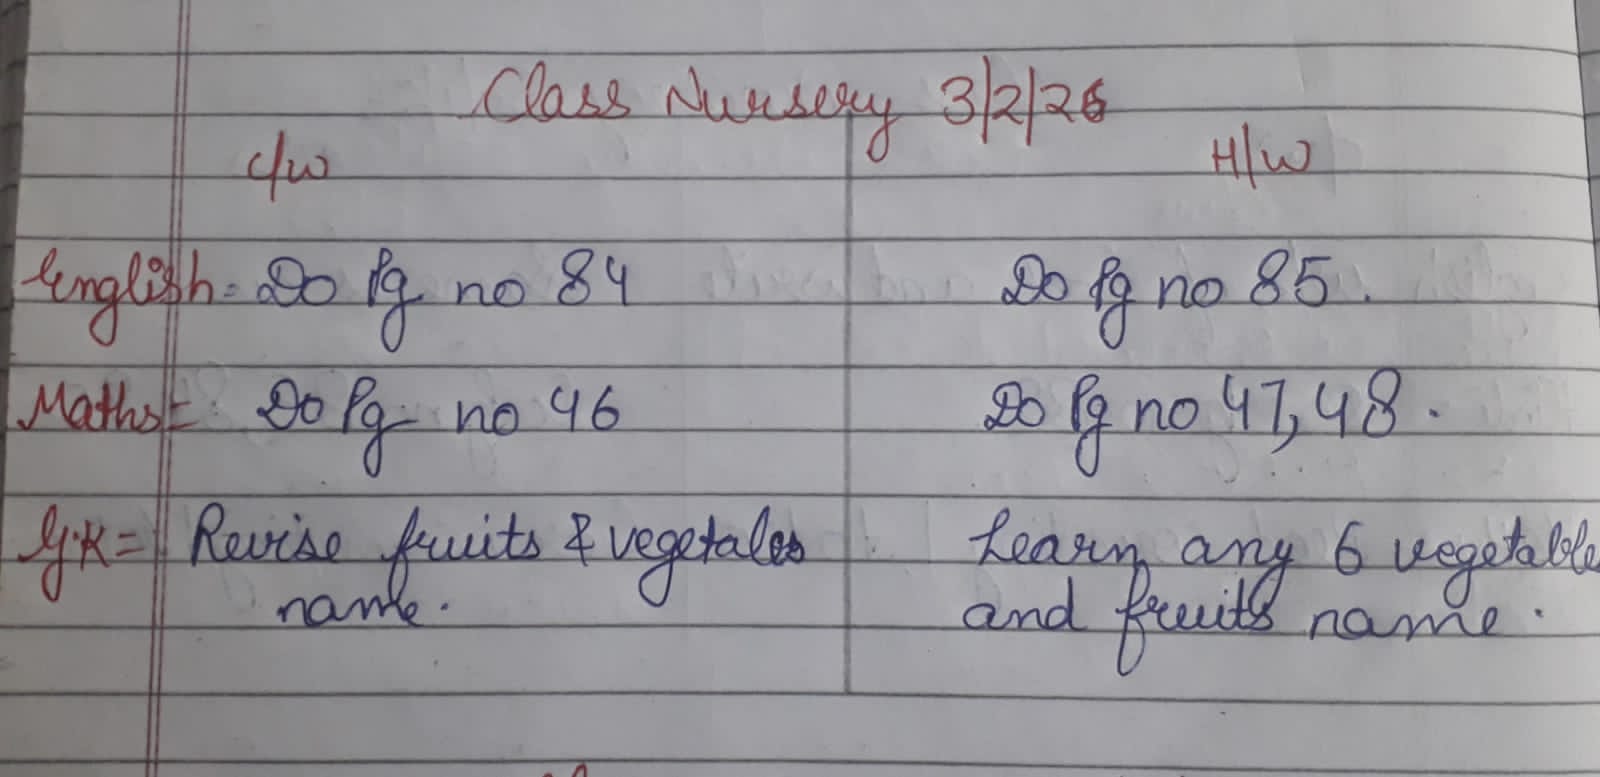 Class Nursery 3/2/26
C/W H/W
English = Do Pg no 84 Do Pg no 85.
Maths = Do Pg no 46 Do Pg no 47, 48.
G.K = Revise fruits & vegetales Learn any 6 vegetable
name. and fruits name.